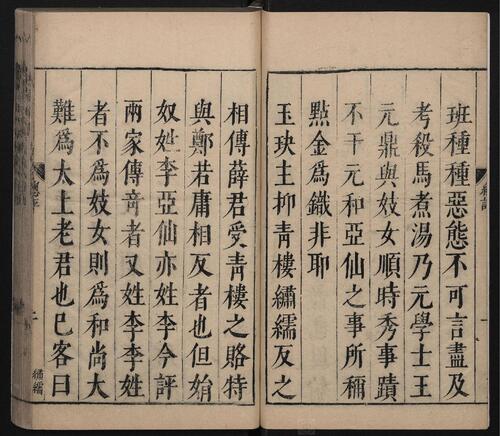 班種種惡態不可言盡及
考殺馬煮湯乃元學士王
元鼎與妓女順時秀事蹟
不干元和亞仙之事所稱
點金爲鐵非聊
玉玦主抑青樓繡繻反之
相傳薛君受青樓之賂特
與鄭若庸相反者也但娟
奴姓李亞仙亦姓李今評
兩家傳竒者又姓李李姓
者不爲妓女則爲和尚大
難爲太上老君也巳客曰
二
繡繻
一